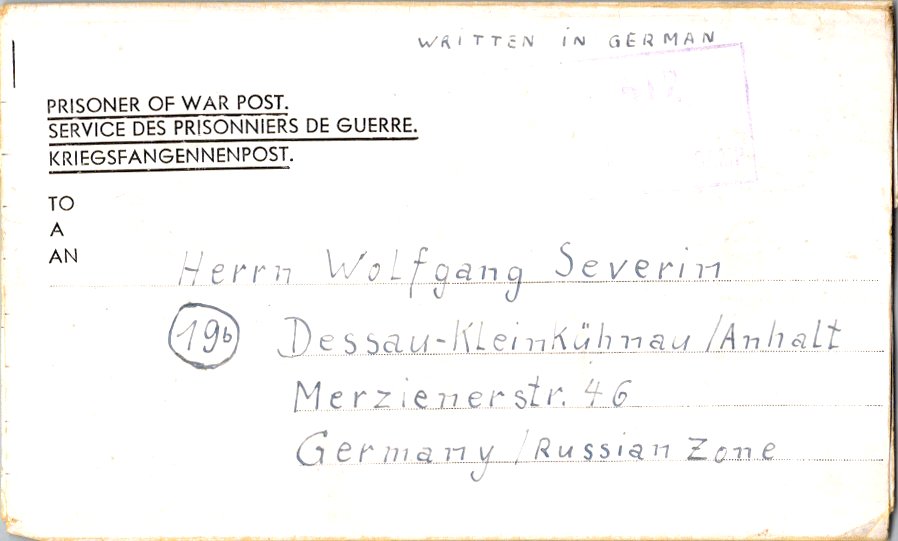 WRITTEN IN GERMAN
PRISONER OF WAR POST.
SERVICE DES PRISONNIERS DE GUERRE.
KRIEGSFANGENNENPOST.
TO
A
AN
Herrn Wolfgang Severin
19b Dessau-Kleinkühnau/Anhalt
Merzienerstr. 46
Germany/Russian Zone